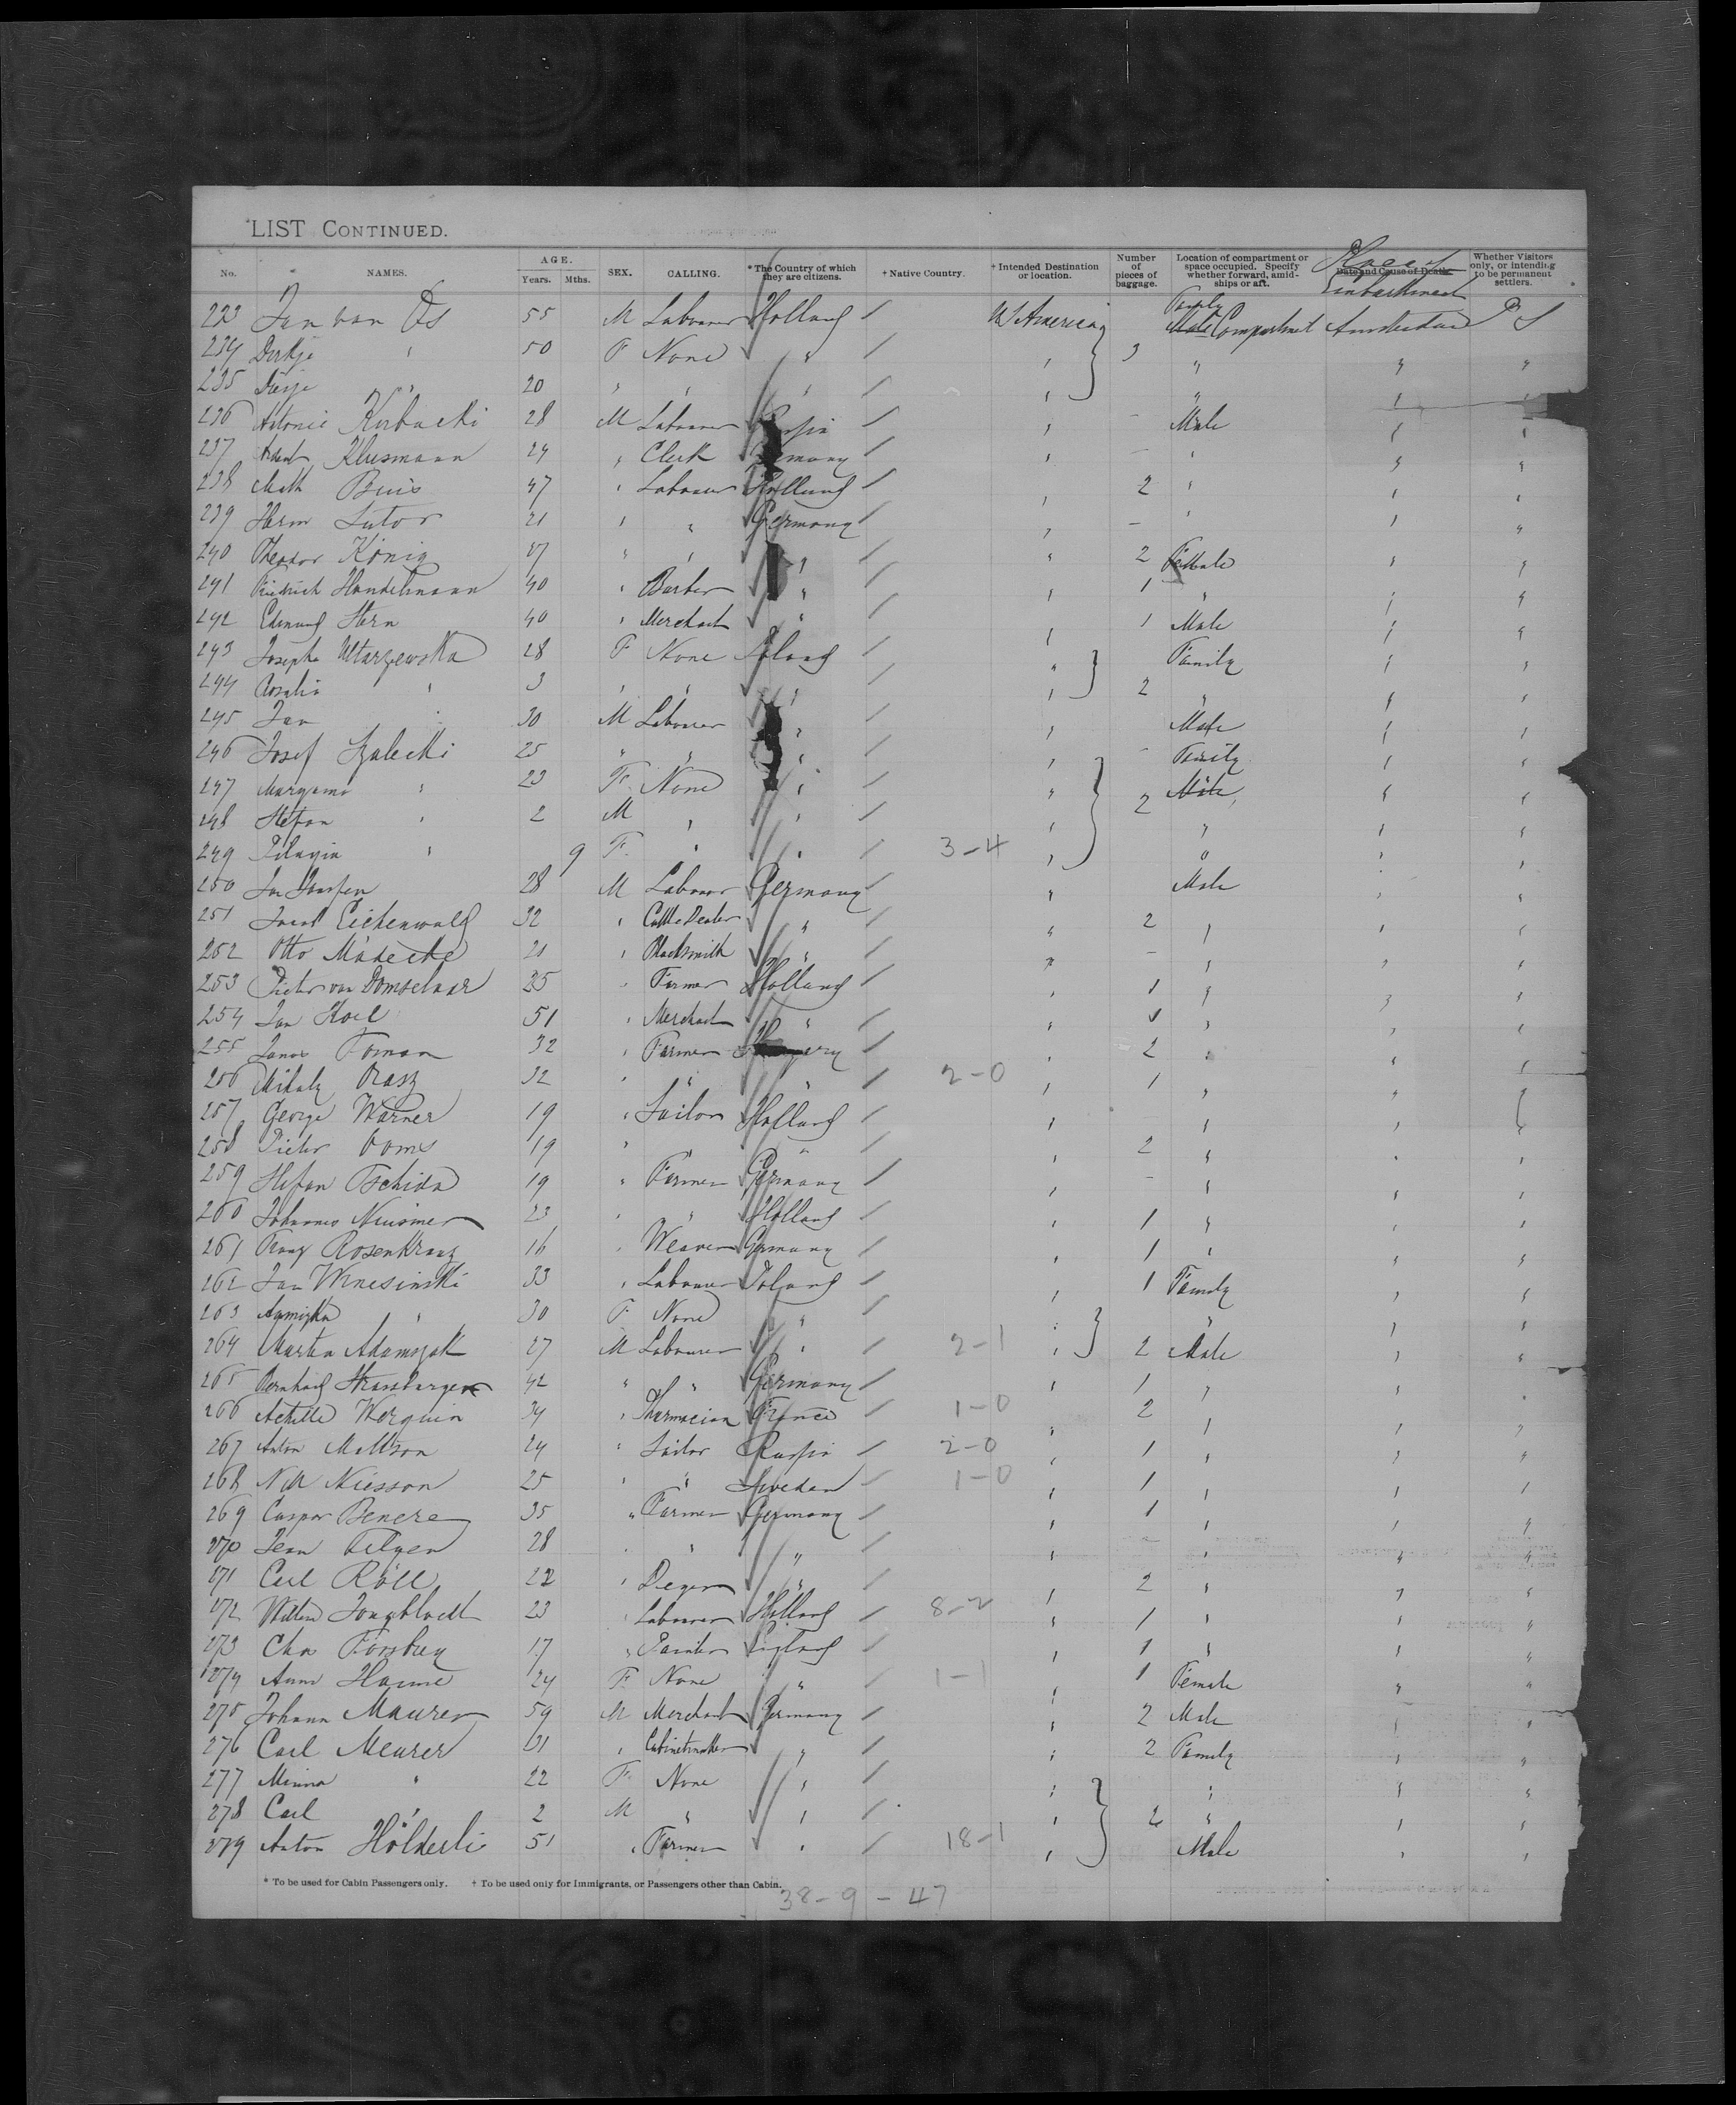 LIST CONTINUED.
No. NAMES. AGE. Years. Mths. SEX. CALLING. * The Country of which they are citizens. † Native Country. † Intended Destination or location. Number of pieces of baggage. Location of compartment or space occupied. Specify whether forward, amidships or aft. Date and Cause of Death. Place of Embarkment Whether Visitors only, or intending to be permanent settlers.
223 Jan van Os 55 M Labourer Holland / US America Family Male Compartment Amsterdam P S
234 Dirkje " 50 F None " / " 3 " " "
235 " 20 " " " / " " " "
236 Antonie Kubacki 28 M Labourer / " - Male " "
237 Klusmann 24 " Clerk / " - " " "
238 Math Buis 47 " Labourer Holland / " 2 " " "
239 Herm Sutor 21 " " Germany / " - " " "
240 Theodor König 17 " " " / " 2 " "
241 Friedrich Handelmann 40 " Barber " / " 1 " " "
242 Edmund Stern 40 " Merchant " / " 1 Male " "
243 Josepha 28 F None Poland / " Family " "
244 Rosalia " 3 " " " / " 2 " " "
245 Jan " 30 M Labourer " / " Male " "
246 Josef Szalecki 25 " " " / " Family " "
247 Maryanna " 23 F None " / " 2 Male " "
248 Stefan " 2 M " " / " " " "
249 " 9 F " " / 3-4 " " " "
250 Jan 28 M Labourer Germany / " Male " "
251 Jacob Eichenwald 32 " Cattle Dealer " / " 2 " " "
252 Otto Mädecke 21 " Blacksmith " / " - " " "
253 Pieter van Domselaar 35 " Farmer Holland / " 1 " " "
254 Jan Koel 51 " Merchant " / " 1 " " "
255 Janos Toman 32 " Farmer Hungary / " 2 " " "
256 Mihaly 32 " " " / 2-0 " 1 " " "
257 George Warner 19 " Sailor Holland / " " "
258 Pieter Ooms 19 " " " / " 2 " " "
259 Stefan Tschida 19 " Farmer Germany / " - " " "
260 Johannes 23 " " Holland / " 1 " " "
261 Franz Rosenkranz 16 " Weaver Germany / " 1 " " "
262 Jan 33 " Labourer Poland / " 1 Family " "
263 " 30 F None " / " " " "
264 Martin Adamszak 27 M Labourer " / 2-1 " 2 Male " "
265 Bernhard Strassburger 42 " " Germany / " 1 " " "
266 Achille Werquin 34 " Pharmacian France / 1-0 " 2 " " "
267 Anton Mattson 24 " Sailor Russia / 2-0 " 1 " " "
268 25 " " Sweden / 1-0 " 1 " " "
269 Caspar 35 " Farmer Germany / " 1 " " "
270 Jean 28 " " " / " - " " "
271 Carl Röll 22 " " / " 2 " " "
272 Willem Jongbloedt 23 " Labourer Holland / 8-2 " 1 " " "
273 Chs 17 " Painter England / " 1 " " "
274 Anna 24 F None " / 1-1 " 1 Female " "
275 Johann Maurer 59 M Merchant Germany / " 2 Male " "
276 Carl Meurer 31 " Cabinetmaker " / " 2 Family " "
277 Minna " 22 F None " / " " " "
278 Carl " 2 M " " / " 2 " " "
279 Anton Hölderli 51 " Farmer " / 18-1 " Male " "
* To be used for Cabin Passengers only. † To be used only for Immigrants, or Passengers other than Cabin.
38-9-47